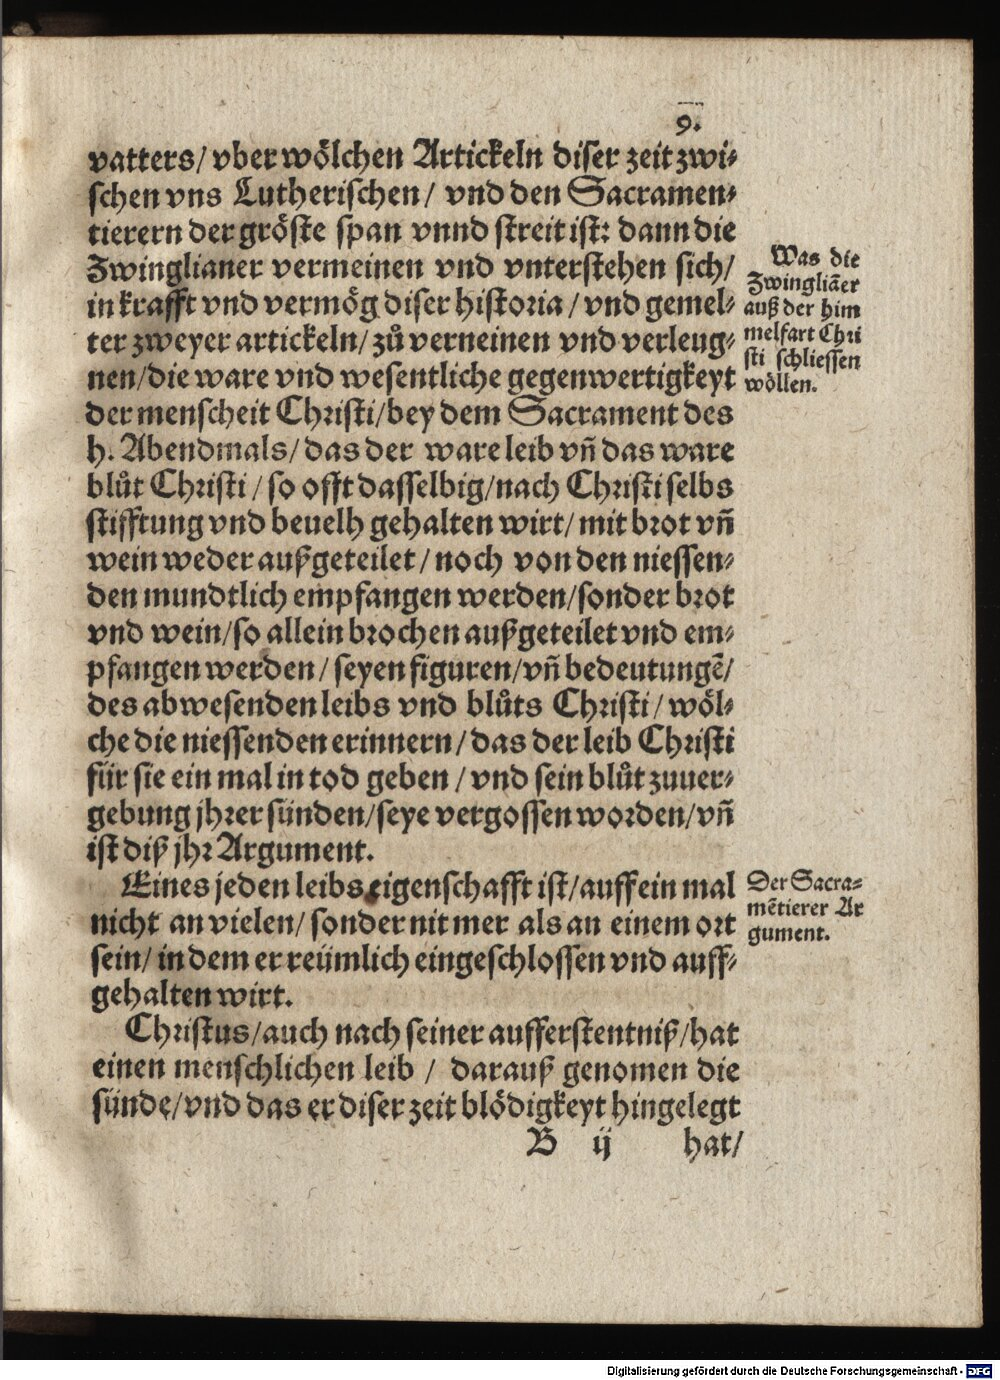 9.
vatters/ vber wölchen Artickeln diser zeit zwi-
schen vns Lutherischen/ vnd den Sacramen-
tierern der gröste span vnnd streit ist: dann die
Zwinglianer vermeinen vnd vnterstehen sich/
in krafft vnd vermög diser historia/ vnd gemel-
ter zweyer artickeln/ zů verneinen vnd verleug-
nen/ die ware vnd wesentliche gegenwertigkeyt
der menscheit Christi/ bey dem Sacrament des
h. Abendmals/ das der ware leib vñ das ware
blůt Christi/ so offt dasselbig/ nach Christi selbs
stifftung vnd beuelh gehalten wirt/ mit brot vñ
wein weder außgeteilet/ noch von den niessen-
den mundtlich empfangen werden/ sonder brot
vnd wein/ so allein brochen außgeteilet vnd em-
pfangen werden/ seyen figuren/ vñ bedeutungẽ/
des abwesenden leibs vnd blůts Christi/ wöl-
che die niessenden erinnern/ das der leib Christi
für sie ein mal in tod geben/ vnd sein blůt zuuer-
gebung jhrer sünden/ seye vergossen worden/ vñ
ist diß jhr Argument.
Eines jeden leibs eigenschafft ist/ auff ein mal
nicht an vielen/ sonder nit mer als an einem ort
sein/ in dem er reümlich eingeschlossen vnd auff-
gehalten wirt.
Christus/ auch nach seiner aufferstentniß/ hat
einen menschlichen leib/ darauß genomen die
sünde/ vnd das er diser zeit blödigkeyt hingelegt
B ij hat/
Was die
Zwingliãer
auß der him
melfart Chri
sti schliessen
wöllen.
Der Sacra-
mẽtierer Ar
gument.
Digitalisierung gefördert durch die Deutsche Forschungsgemeinschaft - DFG